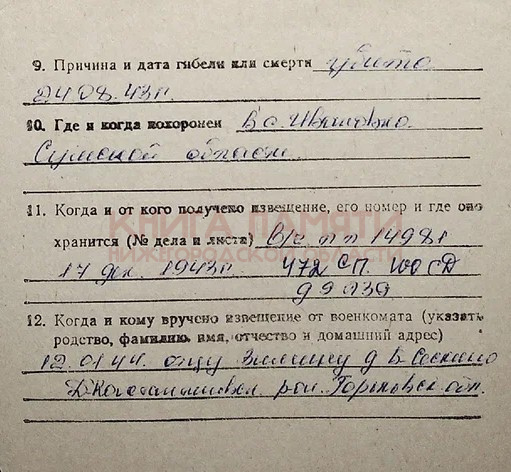 9. Причина и дата гибели или смерти убито
24.08.43 г.
10. Где и когда похоронен В с. Ивановка
Сумской области
11. Когда и от кого получено извещение, его номер и где оно
КНИГА ПАМЯТИ
хранится (№ дела и листа) В/с п п 14981
НИЖЕГОРОДСКОЙ ОБЛАСТИ
17 дек. 1943 г. 472 СП. 100 СД
12. Когда и кому вручено извещение от военкомата (указать
родство, фамилию, имя, отчество и домашний адрес)
12.01.44. отцу д. Б Соскино
Д-Константиновск. рон. Горьковск. обл.